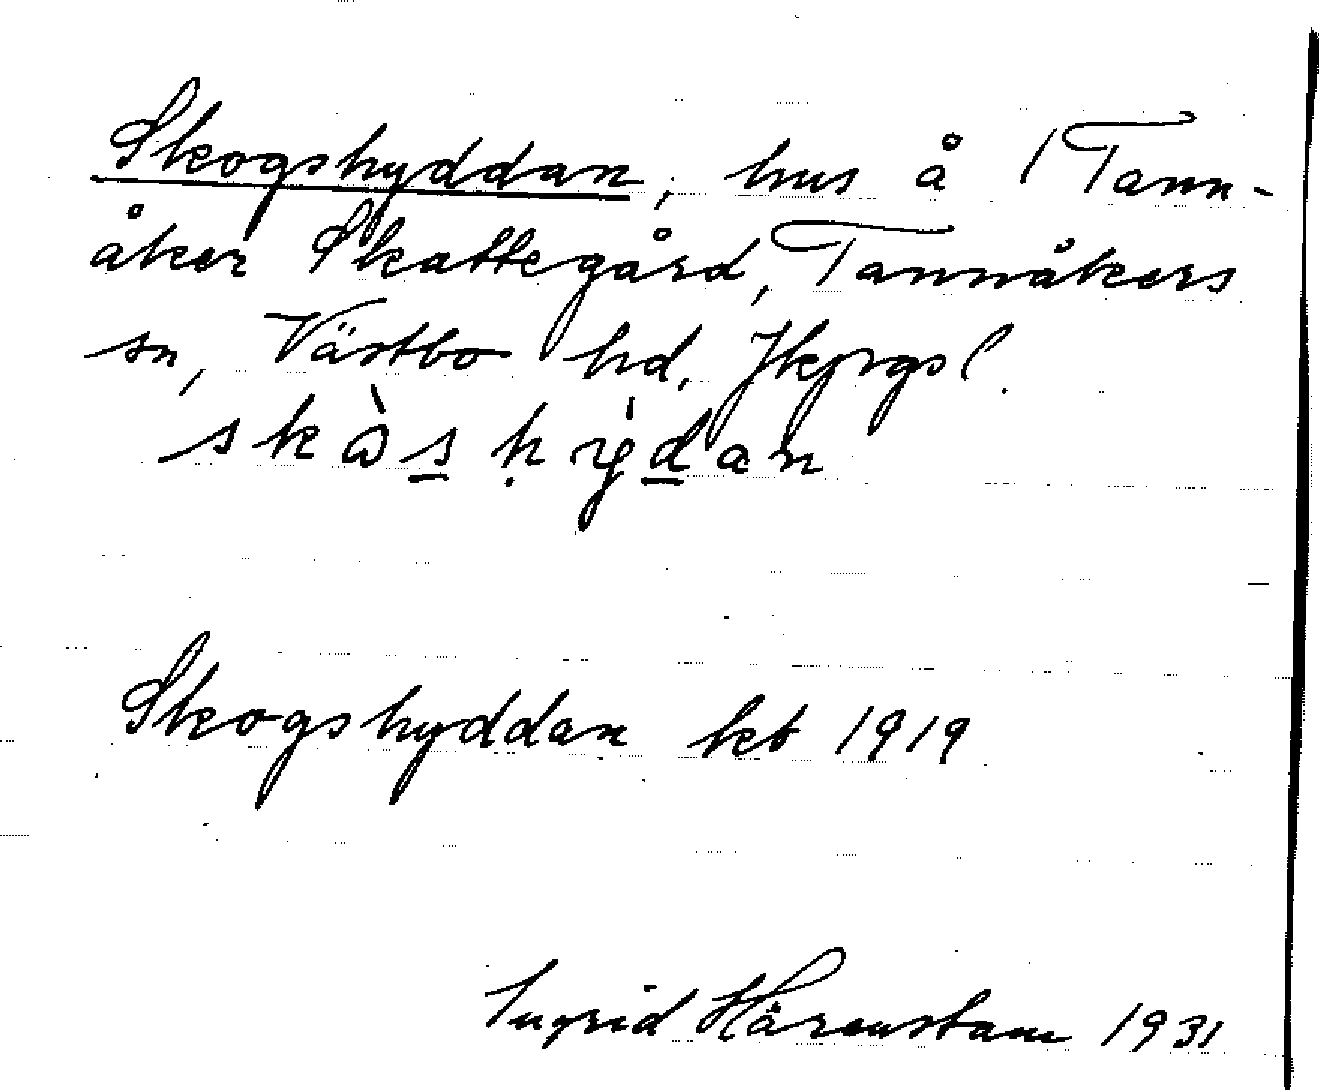 Skogshyddan, hus å 1 Tann-
åker Skattegård, Tannåkers
sn, Västbo hd, Jkpgsl.
skòs̲ ḥỳd̲an
Skogshyddan kb 1919
Ingrid Härenstam 1931